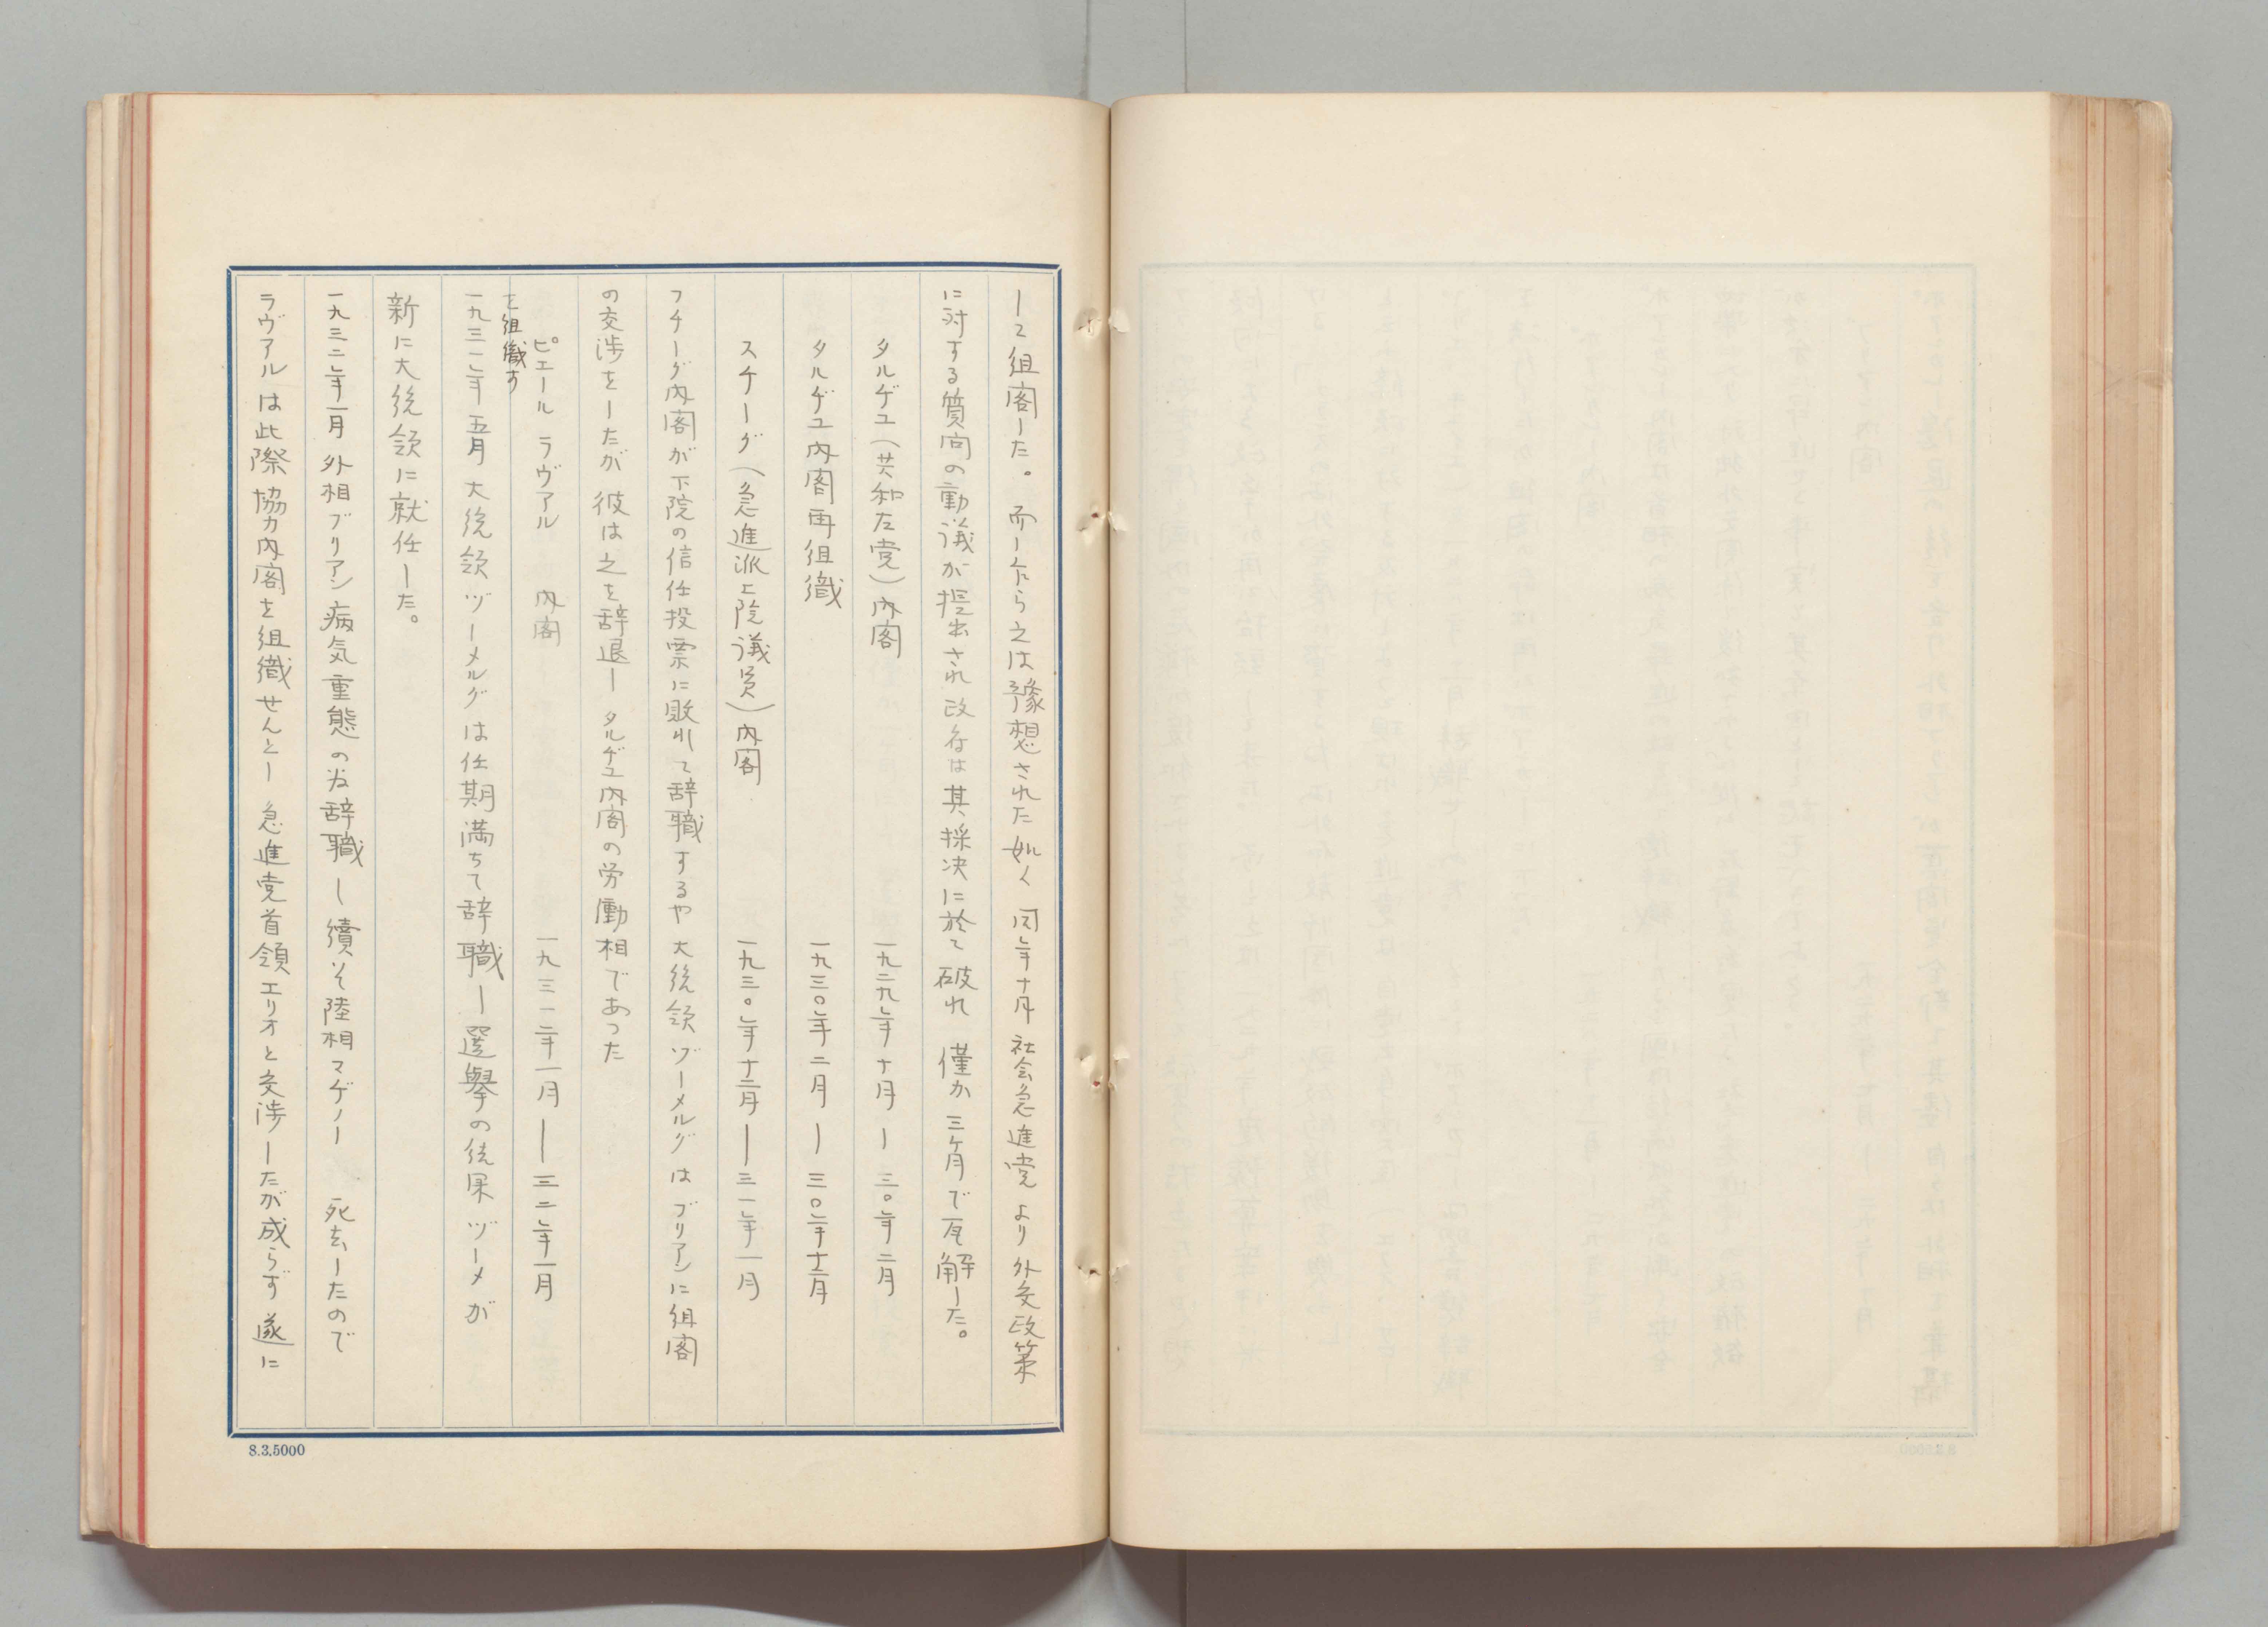 して組閣した。而し乍ら之は豫想された如く同年十月社会急進党より外交政策
に対する質問の動議が提出され政府は其採決に於て破れ僅か三ヶ月で瓦解した。
タルヂユ（共和左党）内閣 一九二九年十月ー三〇年二月
タルヂユ内閣再組織 一九三〇年二月ー三〇年十二月
スチーグ（急進派上院議員）内閣 一九三〇年十二月ー三一年一月
スチーグ内閣が下院の信任投票に敗れて辞職するや大統領ヅーメルグはブリアンに組閣
の交渉をしたが彼は之を辞退しタルヂユ内閣の労働相であった
ピエールラヴアル 内閣 一九三一年一月ー三二年一月
を組織す
一九三一年五月大統領ヅーメルグは任期満ちて辞職し選挙の結果ヅーメが
新に大統領に就任した。
一九三二年一月外相ブリアン病気重態の為辞職し續そ陸相マヂノー死去したので
ラヴアルは此際協力内閣を組織せんとし急進党首領エリオと交渉したが成らず遂に
8.3.5000